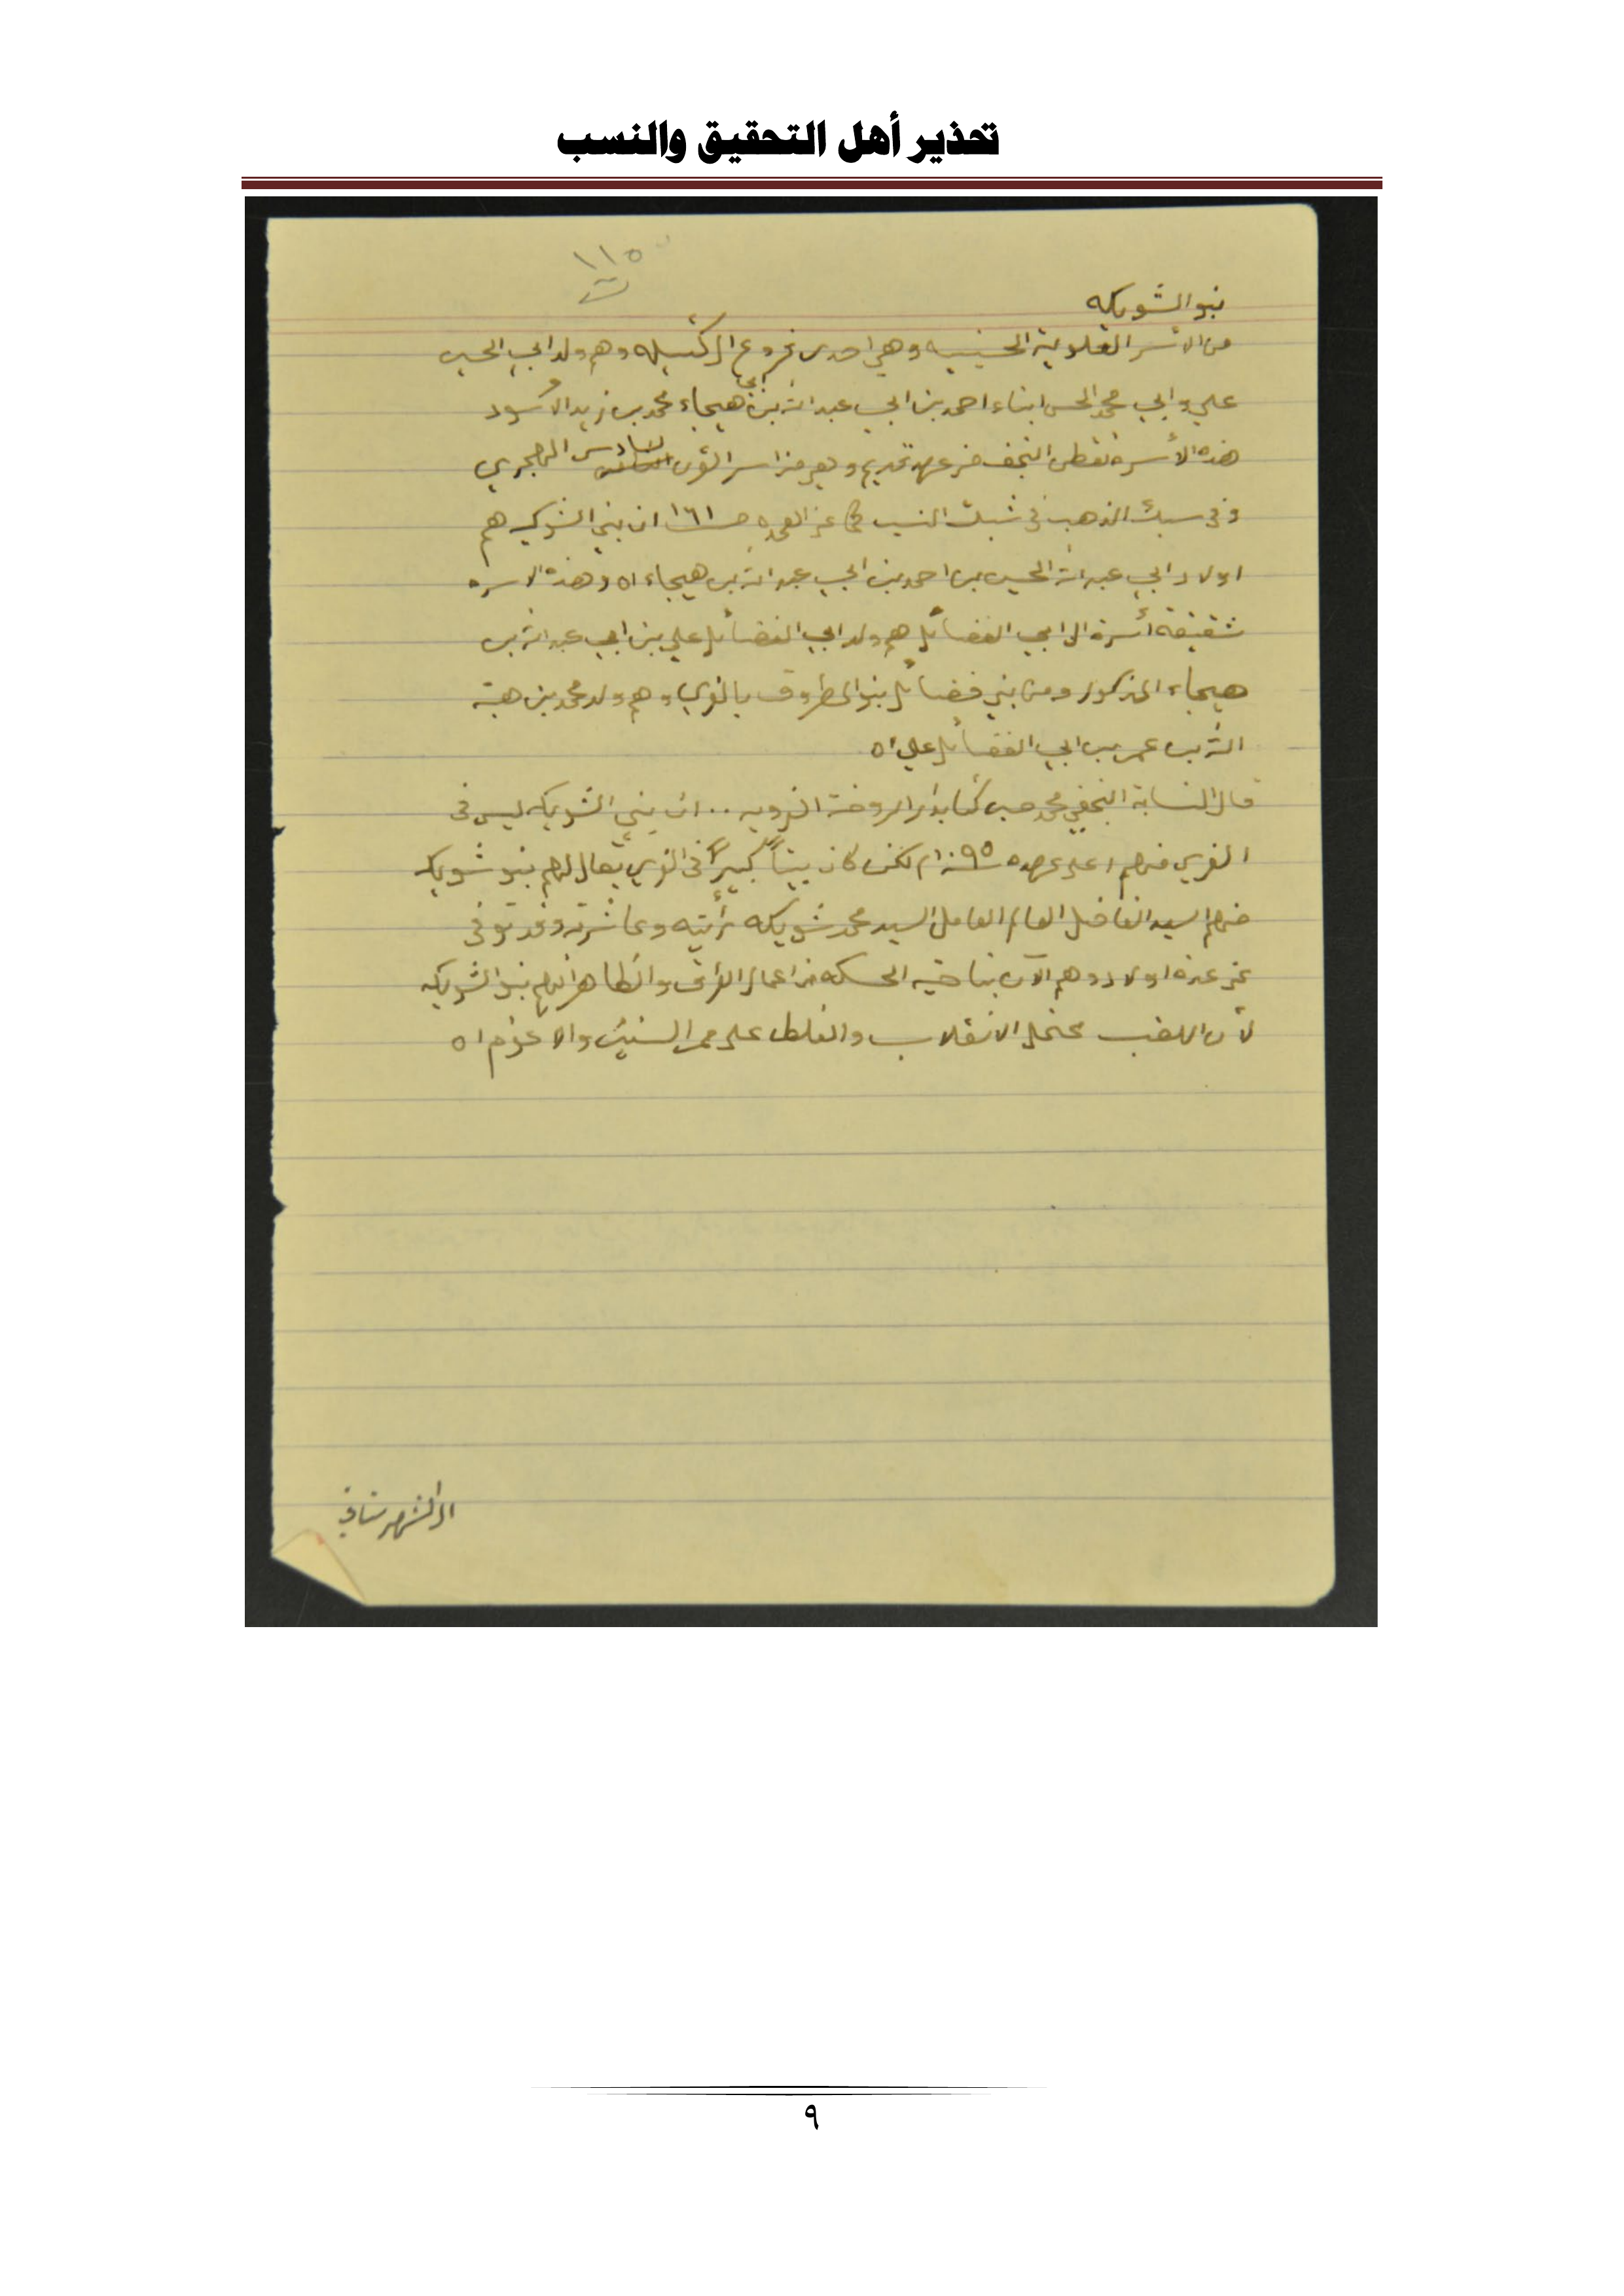 تحذير أهل التحقيق والنسب
١١٥
بنو الشويكه
من الاسر العلوية الحسينيه وهي احدى فروع آل كتيله وهم ولد ابي الحسين
علي وابي محمد الحسن ابناء احمد بن ابي عبد الله بن ابي هيجاء محمد بن زيد الأسود
هذه الأسرة تقطن النجف من عهد قديم وهي من اسر القرن السادس الهجري
وفي سبك الذهب في شبك النسب كما عن العمده ص ١٦١ ان بني الشوكيه هم
اولاد ابي عبد الله الحسين بن احمد بن ابي عبد الله بن هيجاء اه وهذه الاسره
شقيقة أسرة آل ابي الفضائل هم ولد ابي الفضائل علي بن ابي عبد الله بن
هيجاء المذكور ومن بني فضائل بنو المطروف بالغري وهم ولد محمد بن هبة
الله بن عمر بن ابي الفضائل علي اه
قال النسابة النجفي محمد حسين كتابدار الروضة الغرويه .. ان بني الشويكه ليس في
الغري منهم على عهده سنة ١٠٩٥ لكن كان بيتاً كبيراً في الغري يقال لهم بنو شويكه
منهم السيد الفاضل العالم العامل السيد محمد شويكه رأيته وعاشرته وقد توفى
عن عدة اولاد وهم الآن بناحية الحسكه من اعمال العراق والظاهر انهم بنو الشويكه
لأن اللقب محتمل الانقلاب والغلط على ممر السنين والاعوام اه
الشهرستاني
٩